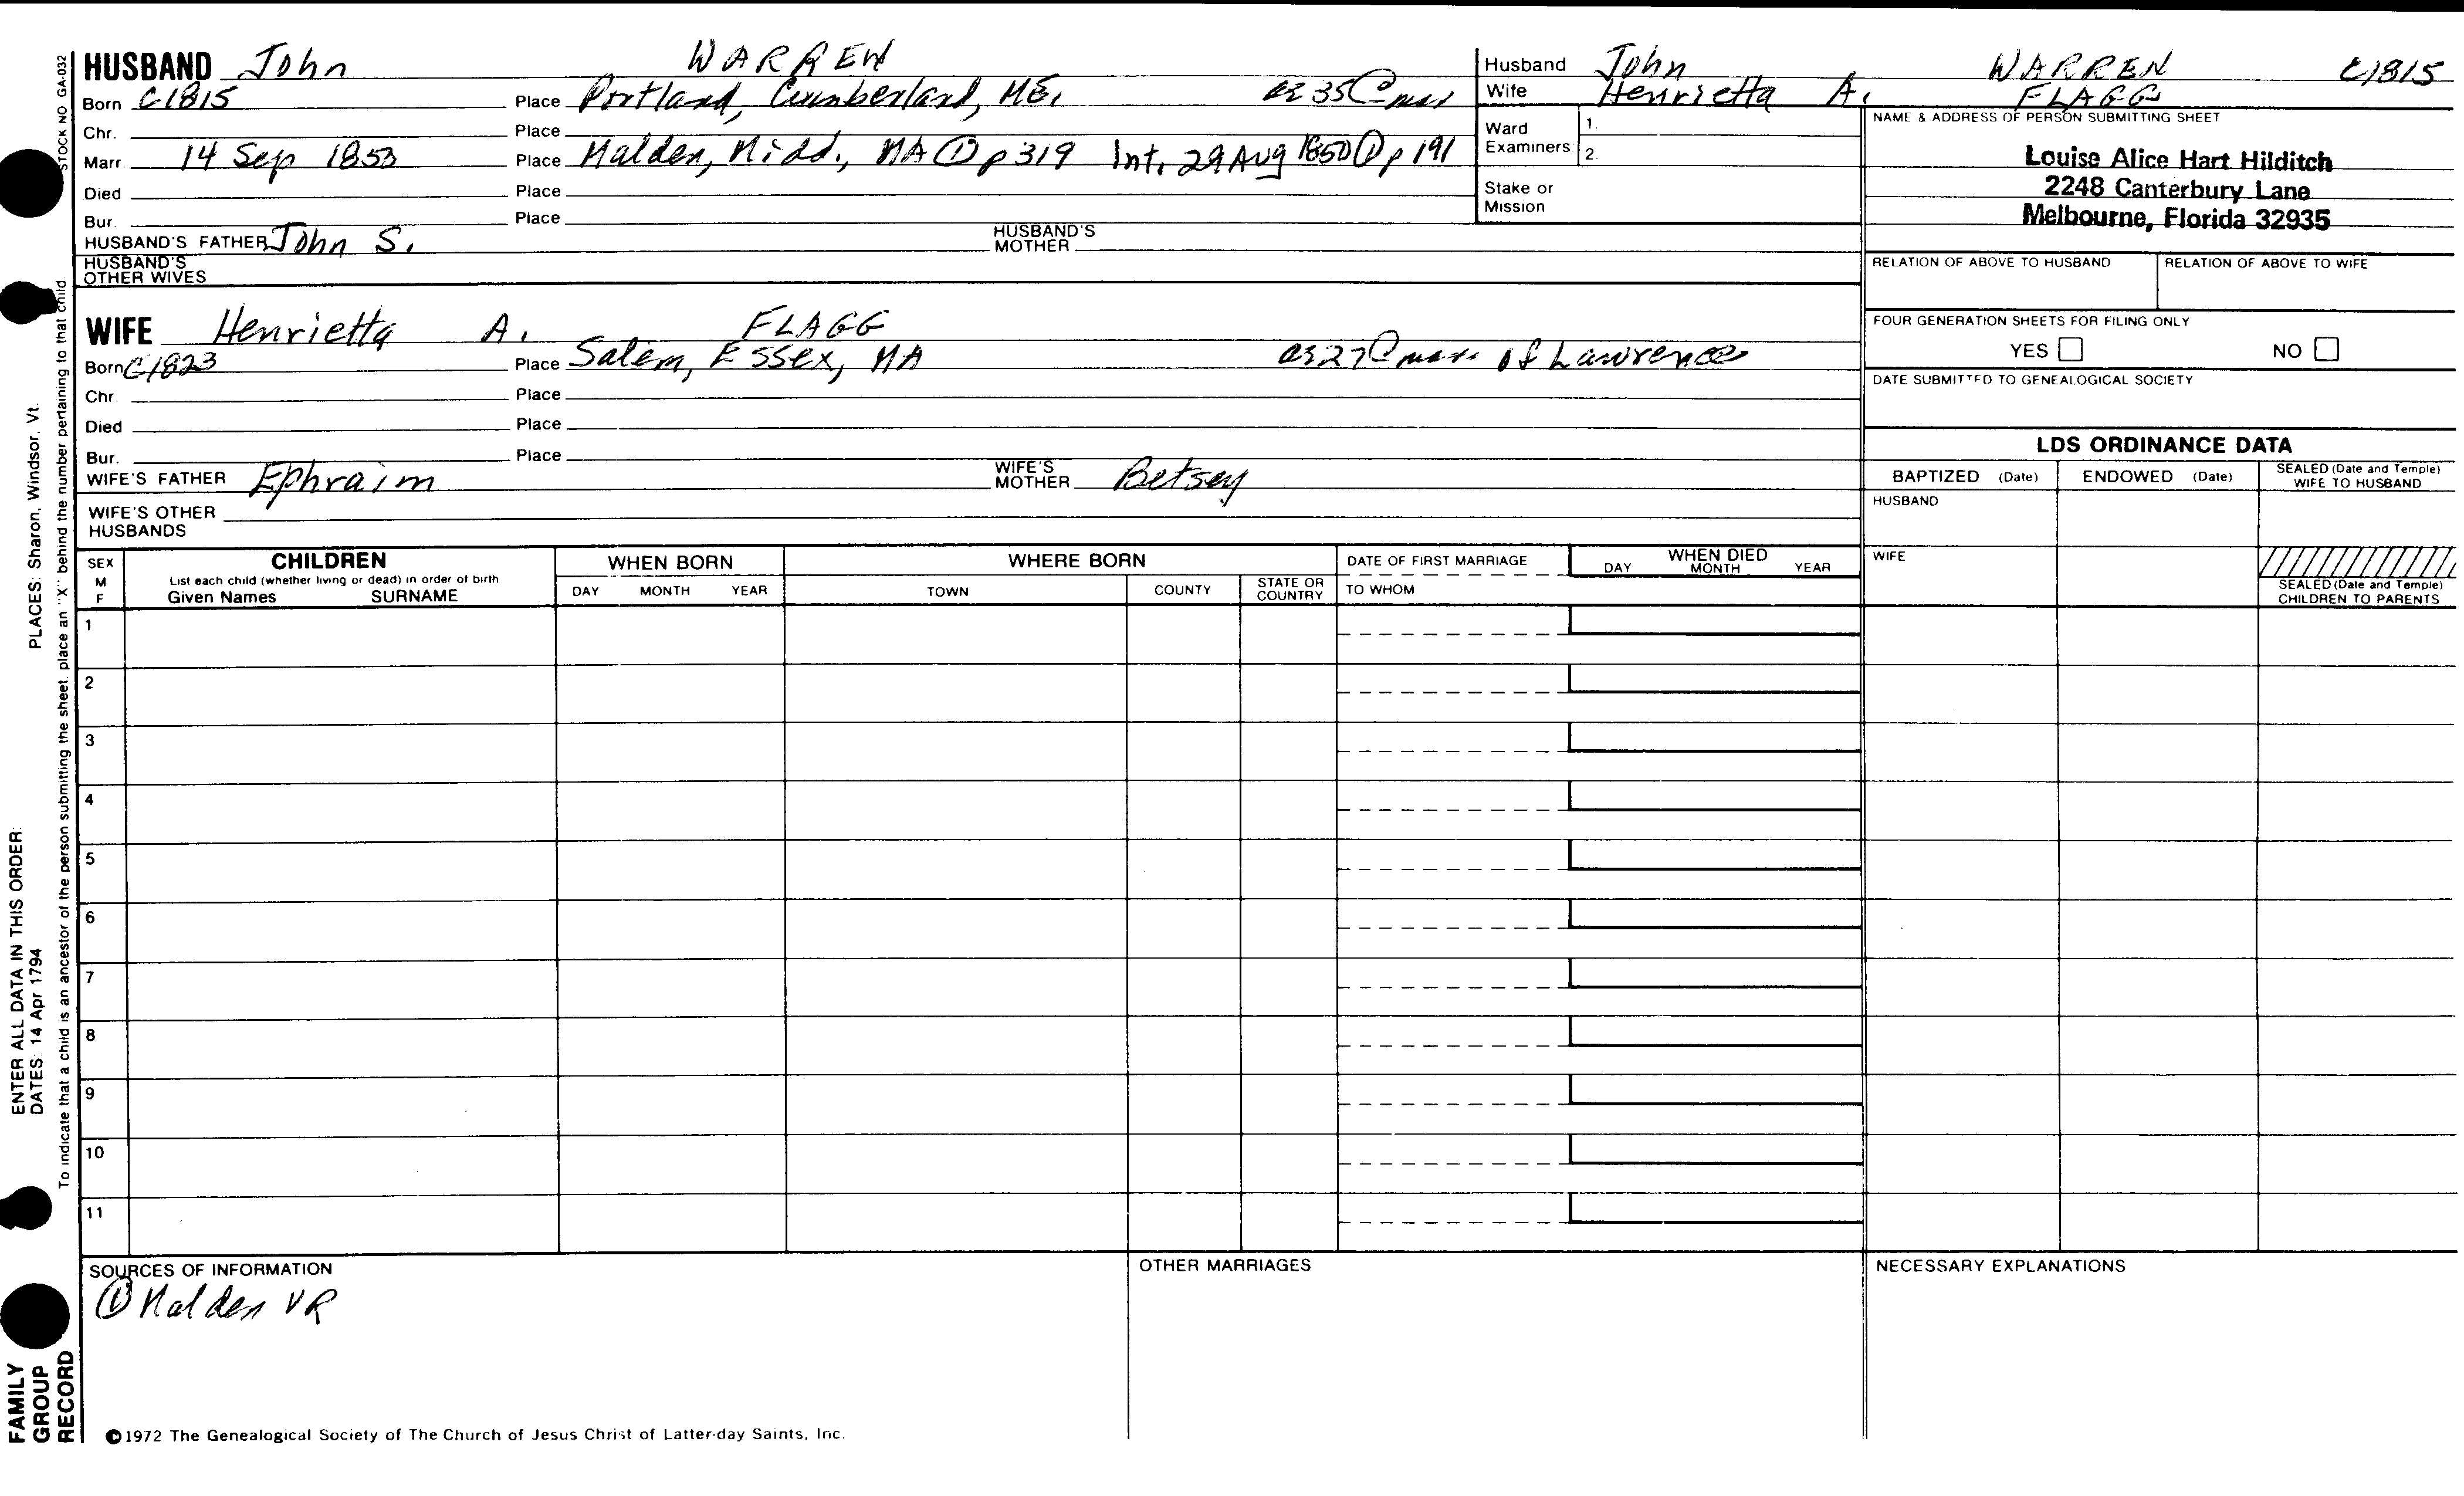 HUSBAND John WARREN
Born C1815 Place Portland, Cumberland, ME, ae 35 @ mar
Chr. Place
Marr. 14 Sep 1853 Place Malden, Midd., MA ① p 319 Int, 29 Aug 1850 ① p 191
Died Place
Bur. Place
HUSBAND'S FATHER John S. HUSBAND'S MOTHER
HUSBAND'S OTHER WIVES
Husband John WARREN C1815
Wife Henrietta A. FLAGG
Ward Examiners 1.
2.
Stake or Mission
NAME & ADDRESS OF PERSON SUBMITTING SHEET
Louise Alice Hart Hilditch
2248 Canterbury Lane
Melbourne, Florida 32935
RELATION OF ABOVE TO HUSBAND RELATION OF ABOVE TO WIFE
FOUR GENERATION SHEETS FOR FILING ONLY
YES NO
DATE SUBMITTED TO GENEALOGICAL SOCIETY
WIFE Henrietta A. FLAGG
Born C1823 Place Salem, Essex, MA ae 27 @ mar. of Lawrence
Chr. Place
Died Place
Bur. Place
WIFE'S FATHER Ephraim WIFE'S MOTHER Betsey
WIFE'S OTHER HUSBANDS
LDS ORDINANCE DATA
BAPTIZED (Date) ENDOWED (Date) SEALED (Date and Temple) WIFE TO HUSBAND
HUSBAND
WIFE
SEALED (Date and Temple) CHILDREN TO PARENTS
SEX M F
CHILDREN
List each child (whether living or dead) in order of birth
Given Names SURNAME
WHEN BORN
DAY MONTH YEAR
WHERE BORN
TOWN COUNTY STATE OR COUNTRY
DATE OF FIRST MARRIAGE
TO WHOM
WHEN DIED
DAY MONTH YEAR
1
2
3
4
5
6
7
8
9
10
11
SOURCES OF INFORMATION
① Malden VR
OTHER MARRIAGES
NECESSARY EXPLANATIONS
©1972 The Genealogical Society of The Church of Jesus Christ of Latter-day Saints, Inc.
STOCK NO GA-032
To indicate that a child is an ancestor of the person submitting the sheet, place an "X" behind the number pertaining to that child.
ENTER ALL DATA IN THIS ORDER:
DATES: 14 Apr 1794
PLACES: Sharon, Windsor, Vt.
FAMILY GROUP RECORD